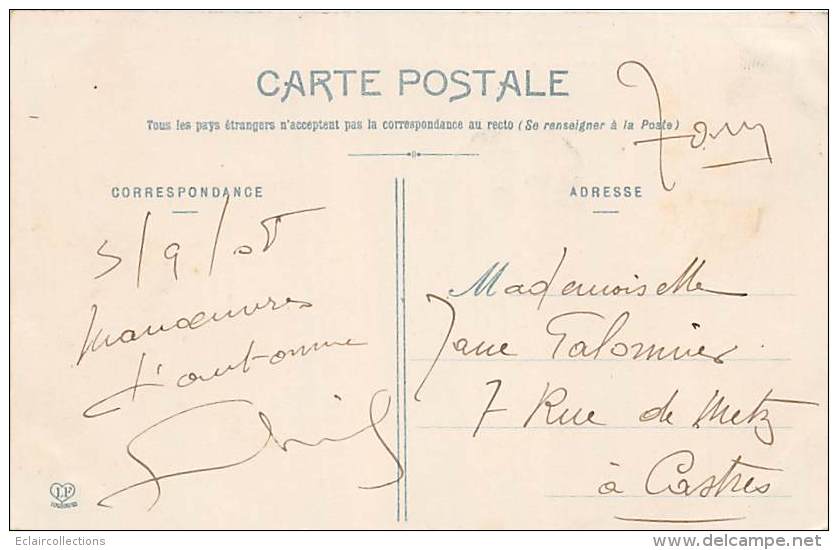 CARTE POSTALE
Tous les pays étrangers n'acceptent pas la correspondance au recto (Se renseigner à la Poste)
CORRESPONDANCE
ADRESSE
5/9/08
Manœuvres
d'automne
Mademoiselle
Jane Talomier
7 Rue de Metz
à Castres
LF
Eclaircollections
delcampe.net